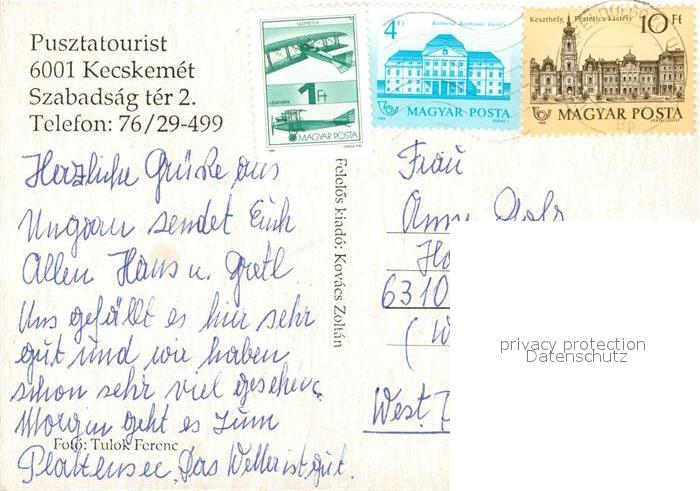 Pusztatourist
6001 Kecskemét
Szabadság tér 2.
Telefon: 76/29-499
1 Ft
LÉGIPOSTA
MAGYAR POSTA
4 Ft
MAGYAR POSTA
Keszthely, Festetics-kastély
10 Ft
MAGYAR POSTA
Herzliche Grüße aus
Ungarn sendet Euch
Allen Hans u. Gretl.
Uns gefällt es hier sehr
gut und wir haben
schon sehr viel gesehen.
Morgen geht es zum
Plattensee. Das Wetter ist gut.
Fotó: Tulok Ferenc
Felelős kiadó: Kovács Zoltán
Frau
6310
West
privacy protection
Datenschutz